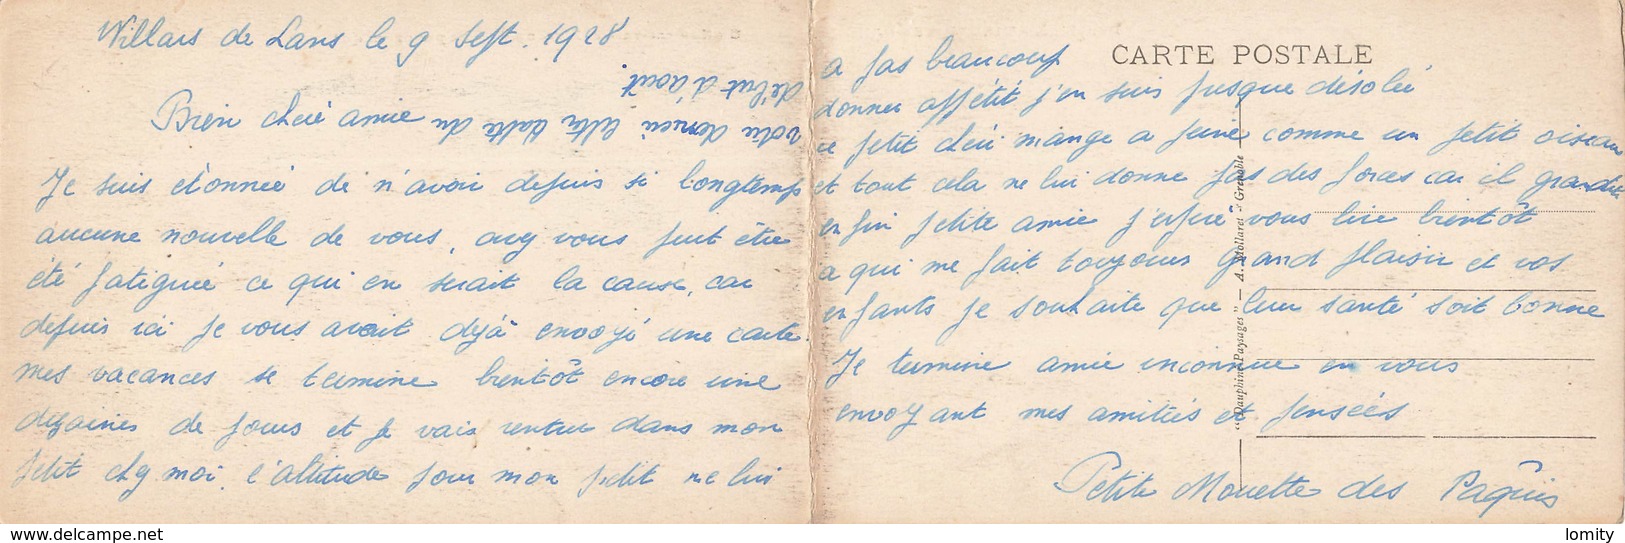 Villars de Lans le 9 Sept. 1928
Bien chère amie
Je suis étonnée de n'avoir depuis si longtemps
aucune nouvelle de vous, avez vous peut être
été fatiguée ce qui en serait la cause, car
depuis ici je vous avait déjà envoyé une carte.
mes vacances se termine bientôt encore une
dizaines de jours et je vais rentrer dans mon
petit chez moi. l'altitude pour mon petit ne lui
votre dernière lettre datte du
début d'août.
CARTE POSTALE
a pas beaucoup
donner appétit j'en suis presque désolée
ce petit chéri mange a peine comme un petit oiseau
et tout cela ne lui donne pas des forces car il grandit
enfin petite amie j'espère vous lire bientôt
a qui me fait toujours grand plaisir et vos
enfants je souhaite que leur santé soit bonne
Je termine amie inconnue en vous
envoyant mes amitiés et pensées
Petite Mouette des Pâquis
"Dauphiné-Paysages" — A. Mollaret - Grenoble
lomity